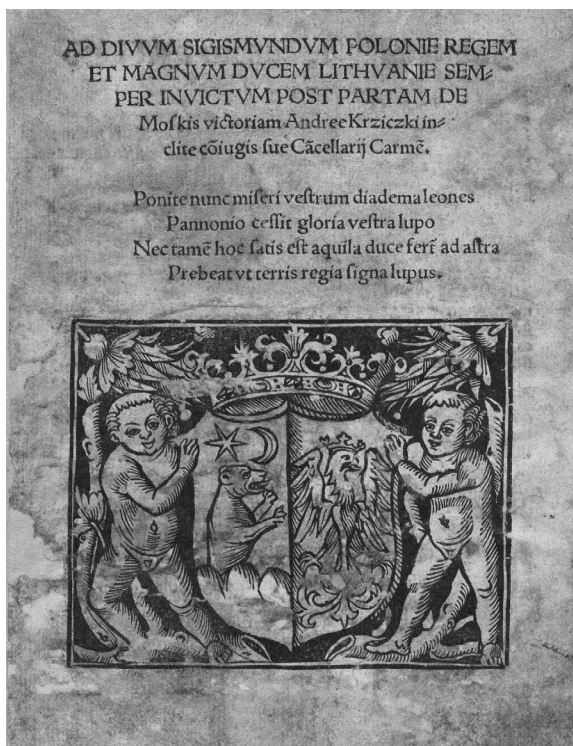 AD DIVVM SIGISMVNDVM POLONIE REGEM
ET MAGNVM DVCEM LITHVANIE SEM⸗
PER INVICTVM POST PARTAM DE
Moſkis victoriam Andree Krziczki in⸗
clite cõiugis ſue Cãcellarij Carmẽ.
Ponite nunc miſeri veſtrum diadema leones
Pannonio ceſſit gloria veſtra lupo
Nec tamẽ hoc ſatis eſt aquila duce ferť ad aſtra
Prebeat vt terris regia ſigna lupus.